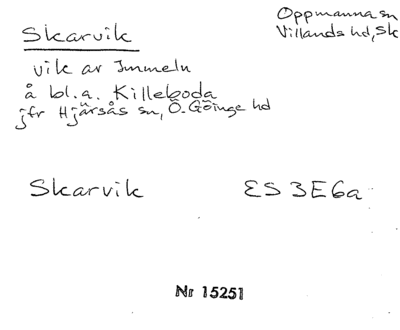 Skarvik
Oppmanna sn
Villands hd, Sk
vik av Immeln
å bl.a. Killeboda
jfr Hjärsås sn, Ö. Göinge hd
Skarvik ES 3E6a
Nr 15251